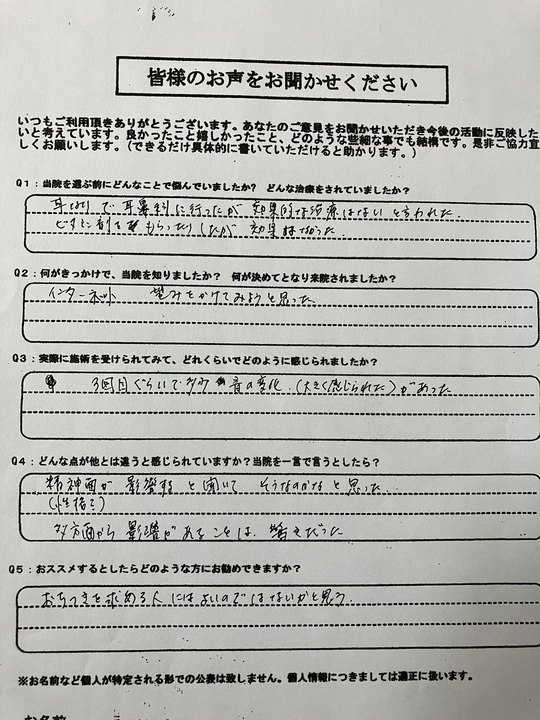 皆様のお声をお聞かせください
いつもご利用頂きありがとうございます。あなたのご意見をお聞かせいただき今後の活動に反映した
いと考えています。良かったこと嬉しかったこと、どのような些細な事でも結構です。是非ご協力宜
しくお願いします。(できるだけ具体的に書いていただけると助かります。)
Q1：当院を選ぶ前にどんなことで悩んでいましたか？ どんな治療をされていましたか？
耳なりで耳鼻科に行ったが効果的な治療はないと言われた。
ビタミン剤をもらったりしたが効果はなかった。
Q2：何がきっかけで、当院を知りましたか？ 何が決めてとなり来院されましたか？
インターネット 望みをかけてみようと思った
Q3：実際に施術を受けられてみて、どれくらいでどのように感じられましたか？
3回目ぐらいで 音の変化(大きく感じられた)があった
Q4：どんな点が他とは違うと感じられていますか？当院を一言で言うとしたら？
精神面が影響すると聞いて そうなのかなと思った。
(性格も)
多方面から影響があることは、驚きだった
Q5：おススメするとしたらどのような方にお勧めできますか？
おちつきを求める人にはよいのではないかと思う。
※お名前など個人が特定される形での公表は致しません。個人情報につきましては適正に扱います。
お名前